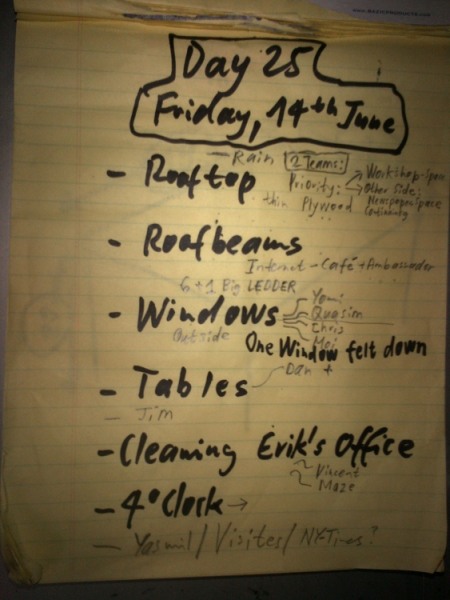 Day 25
Friday, 14th June
- Rain 2 Teams:
- Rooftop Priority: → Workshop-space
→ Other side:
thin Plywood Newspaperspace
- Roofbeams
Internet-Café + Ambassador
6 + 1 Big LEDDER
- Windows Yomi
Quasim
Chris
Outside Moi
One Window felt down
- Tables Dan +
- Jim
- Cleaning Erik's Office
Vincent
Maze
- 4o'Clock →
- Yasmil / Visites / NY-Times?